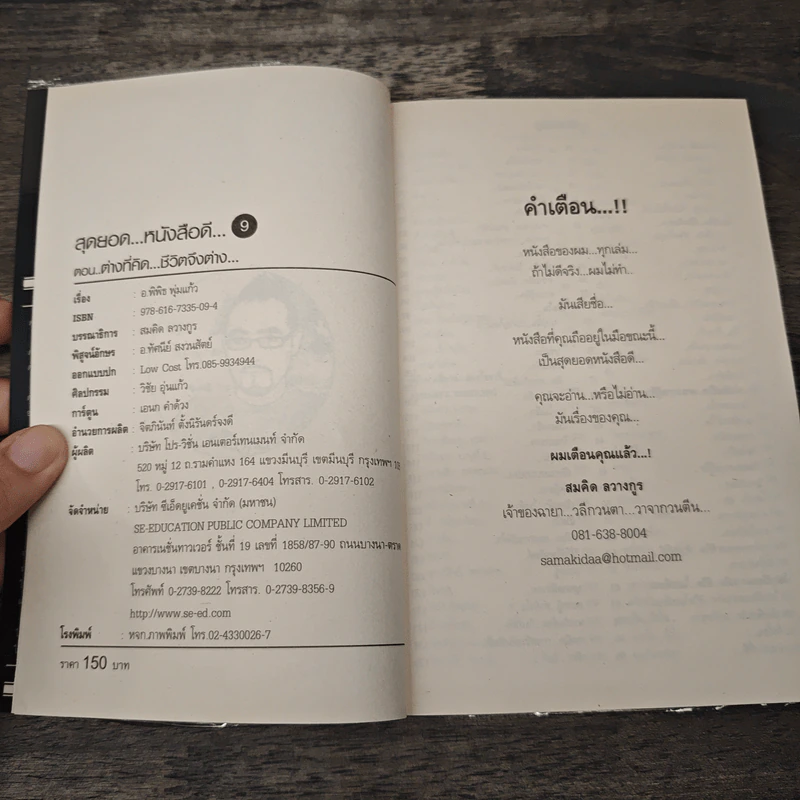 สุดยอด...หนังสือดี... 9
ตอน..ต่างที่คิด...ชีวิตจึงต่าง...
เรื่อง : อ.พิพิธ พุ่มแก้ว
ISBN : 978-616-7335-09-4
บรรณาธิการ : สมคิด ลวางกูร
พิสูจน์อักษร : อ.ทัศนีย์ สงวนสัตย์
ออกแบบปก : Low Cost โทร.085-9934944
ศิลปกรรม : วิชัย อุ่นแก้ว
การ์ตูน : เอนก คำด้วง
อำนวยการผลิต : จิตภินันท์ ตั้งนิรันตร์จงดี
ผู้ผลิต : บริษัท โปร-วิชั่น เอนเตอร์เทนเมนท์ จำกัด
520 หมู่ 12 ถ.รามคำแหง 164 แขวงมีนบุรี เขตมีนบุรี กรุงเทพฯ
โทร. 0-2917-6101 , 0-2917-6404 โทรสาร. 0-2917-6102
จัดจำหน่าย : บริษัท ซีเอ็ดยูเคชั่น จำกัด (มหาชน)
SE-EDUCATION PUBLIC COMPANY LIMITED
อาคารเนชั่นทาวเวอร์ ชั้นที่ 19 เลขที่ 1858/87-90 ถนนบางนา-ตราด
แขวงบางนา เขตบางนา กรุงเทพฯ 10260
โทรศัพท์ 0-2739-8222 โทรสาร. 0-2739-8356-9
http://www.se-ed.com
โรงพิมพ์ : หจก.ภาพพิมพ์ โทร.02-4330026-7
ราคา 150 บาท
คำเตือน...!!
หนังสือของผม...ทุกเล่ม...
ถ้าไม่ดีจริง...ผมไม่ทำ..
มันเสียชื่อ...
หนังสือที่คุณถืออยู่ในมือขณะนี้...
เป็นสุดยอดหนังสือดี...
คุณจะอ่าน...หรือไม่อ่าน...
มันเรื่องของคุณ...
ผมเตือนคุณแล้ว...!
สมคิด ลวางกูร
เจ้าของฉายา...วลีกวนตา...วาจากวนตีน...
081-638-8004
samakidaa@hotmail.com